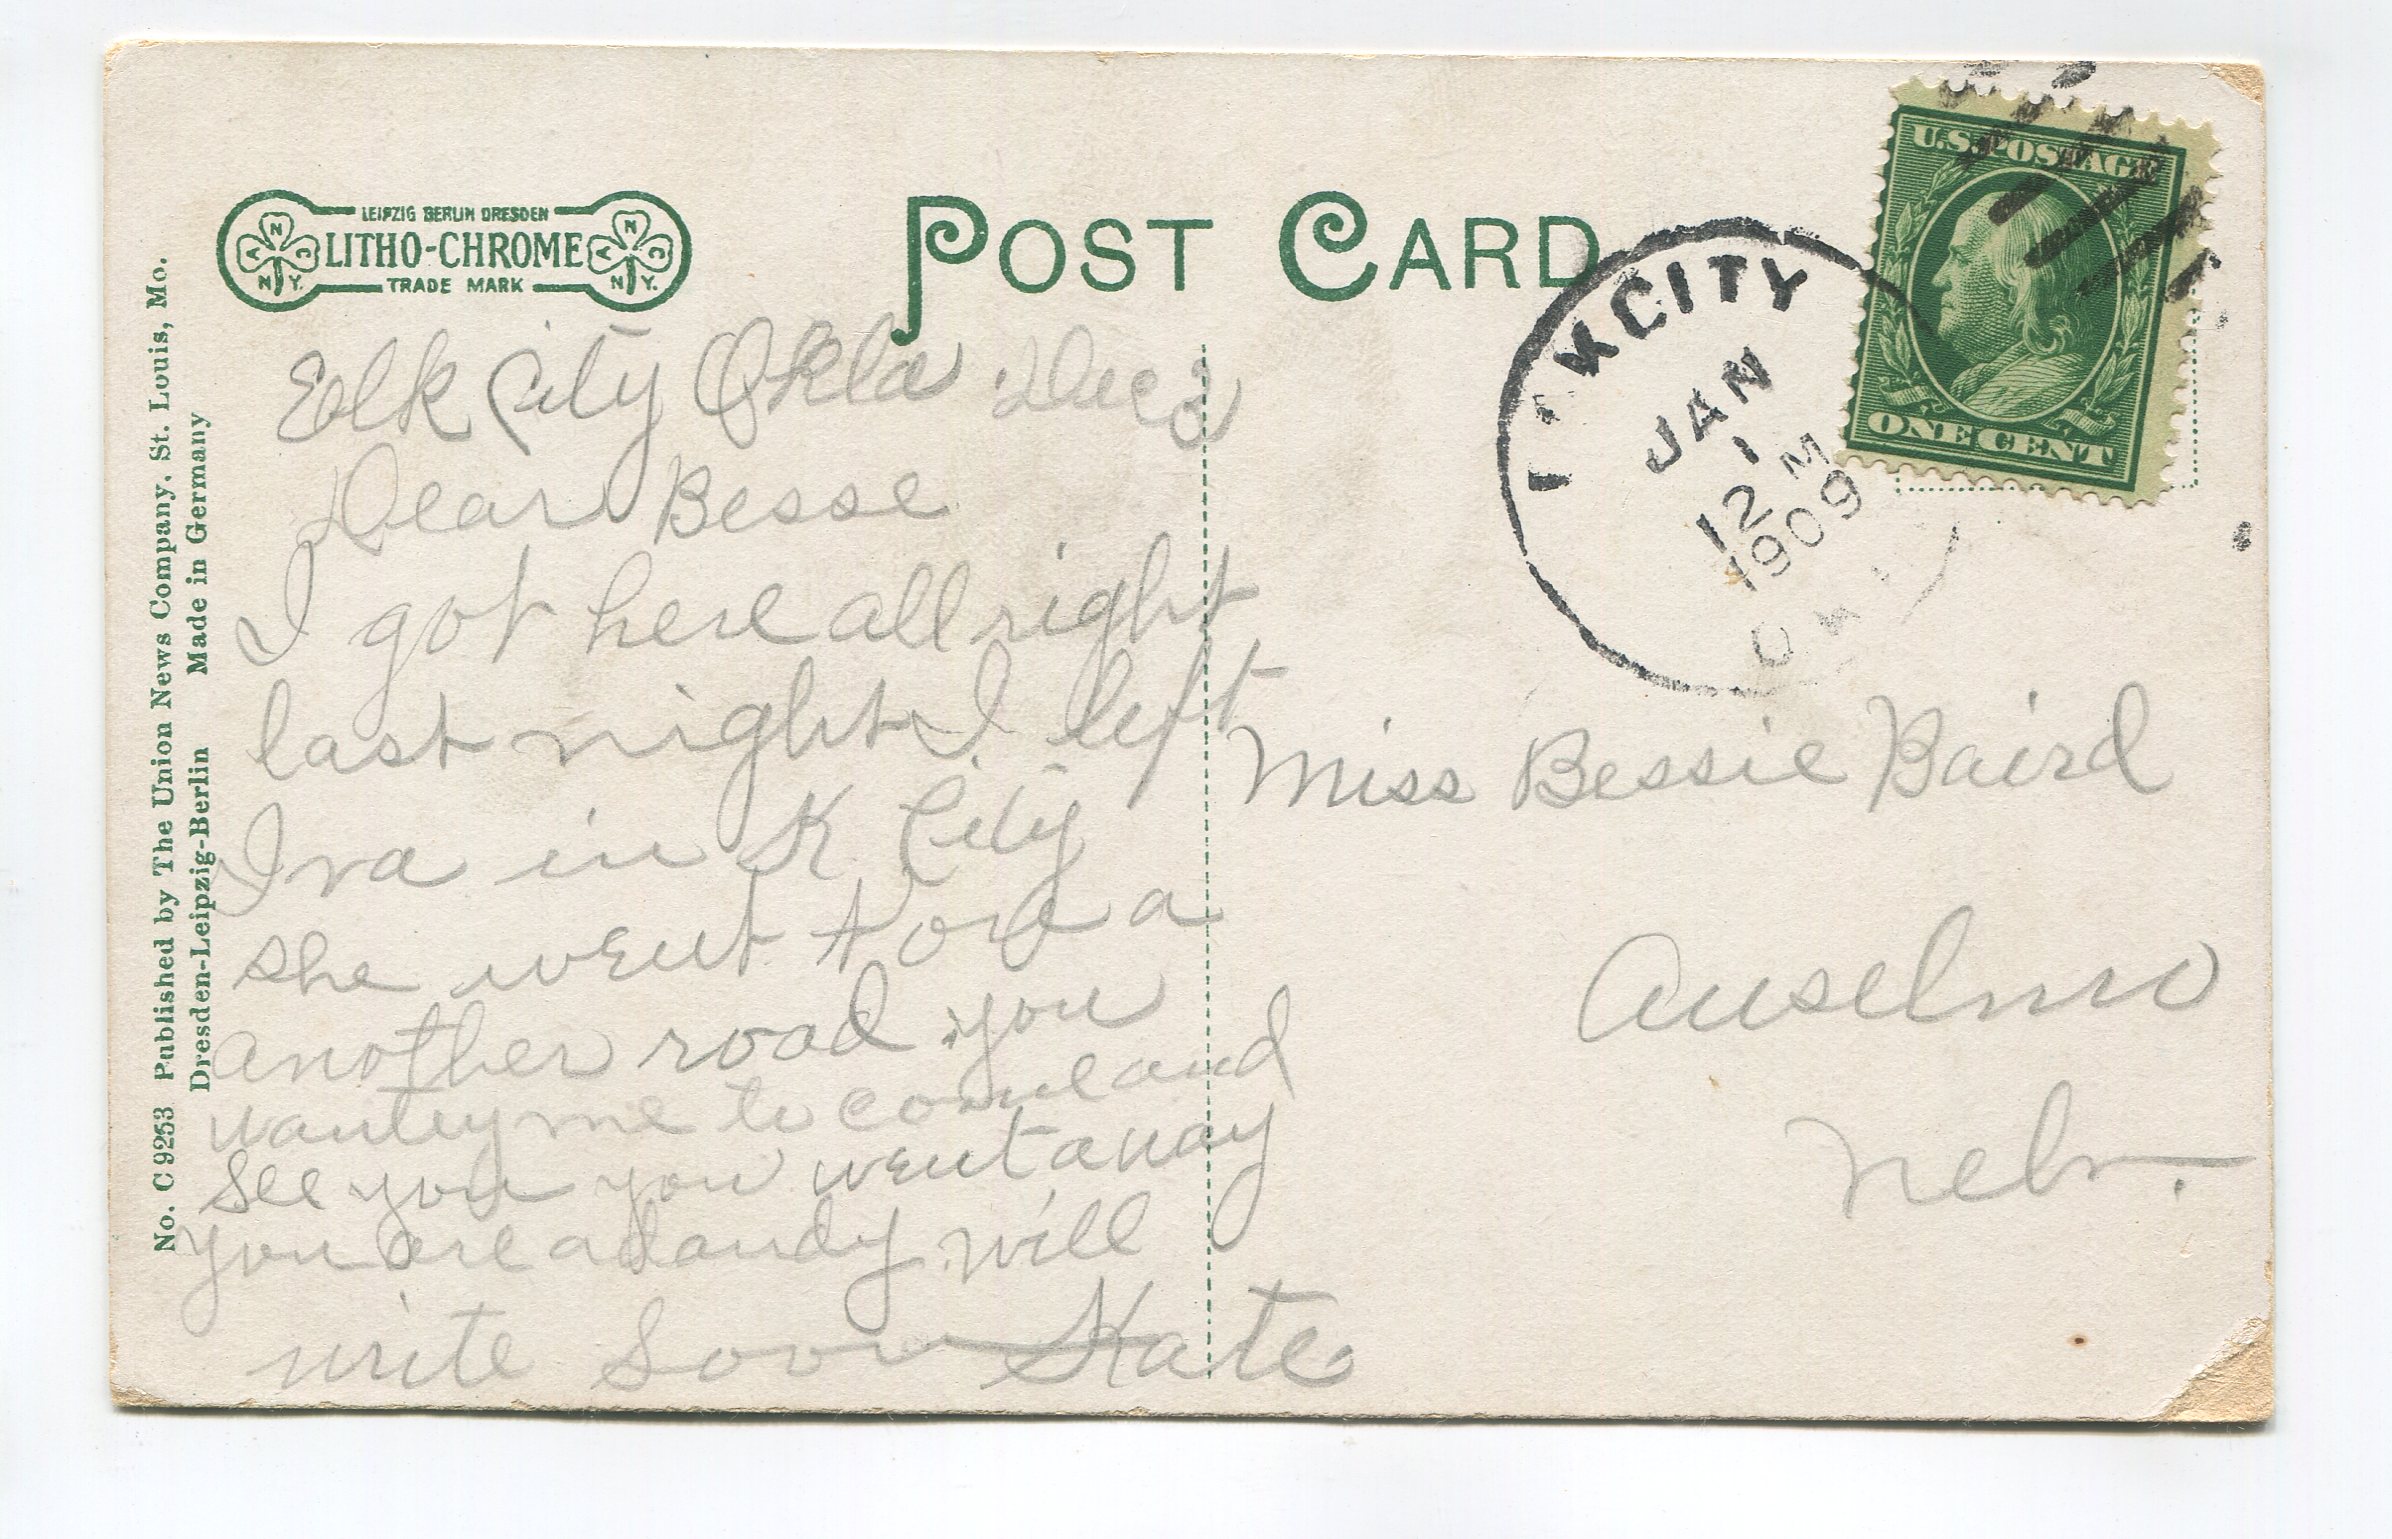 No. C 9253 Published by The Union News Company, St. Louis, Mo.
Dresden-Leipzig-Berlin Made in Germany
LEIPZIG BERLIN DRESDEN
LITHO-CHROME
TRADE MARK
A N C
N.Y.
A N C
N.Y.
POST CARD
U.S. POSTAGE
ONE CENT
CITY
JAN
1
12 M
1909
Elk City Okla Dec
Dear Besse
I got here all right
last night I left
Iva in K City
she went
another road you
me to come and
see you you went away
you are a dandy will
write soon Kate
Miss Bessie Baird
Anselmo
Nebr.